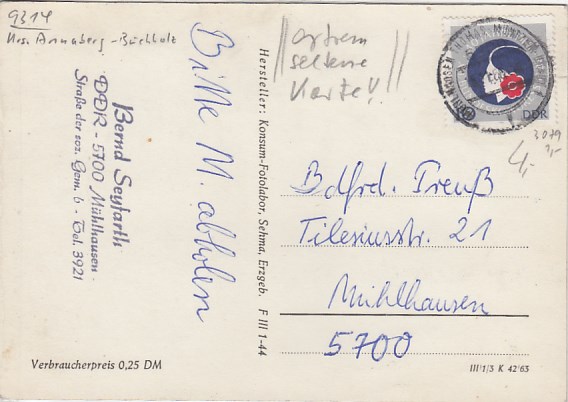 9314
Krs. Annaberg-Buchholz
Bernd Seyfarth
DDR - 5700 Mühlhausen
Straße der soz. Gem. 6 - Tel. 3921
Bitte M. abholen
Hersteller: Konsum-Fotolabor, Sehma, Erzgeb. F III 1-44
extrem
seltene
Karte!!
DDR
3079
4,-
Bdfrd. Preuß
Tilesiusstr. 21
Mühlhausen
5700
Verbraucherpreis 0,25 DM
III/1/3 K 42/63